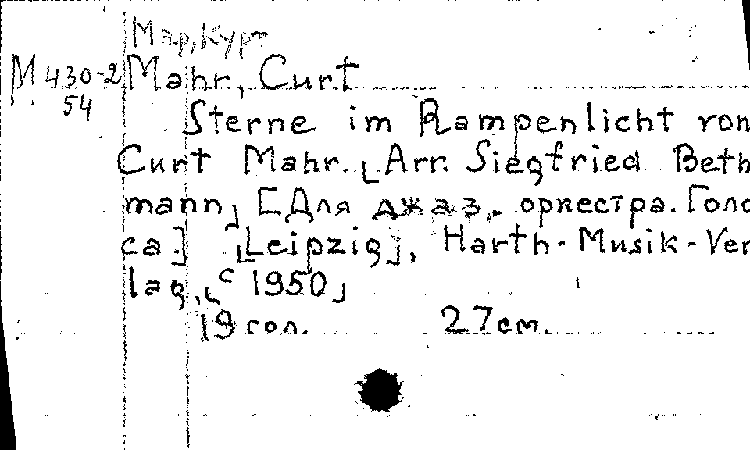 Мар, Курт
М 430-2 Mahr, Curt
54
Sterne im Rampenlicht von
Curt Mahr. [Arr. Siegfried Beth
mann] [Для джаз-оркестра. Голо
са] [Leipzig], Harth-Musik-Ver
lag, [c 1950]
19 гол. 27 см.